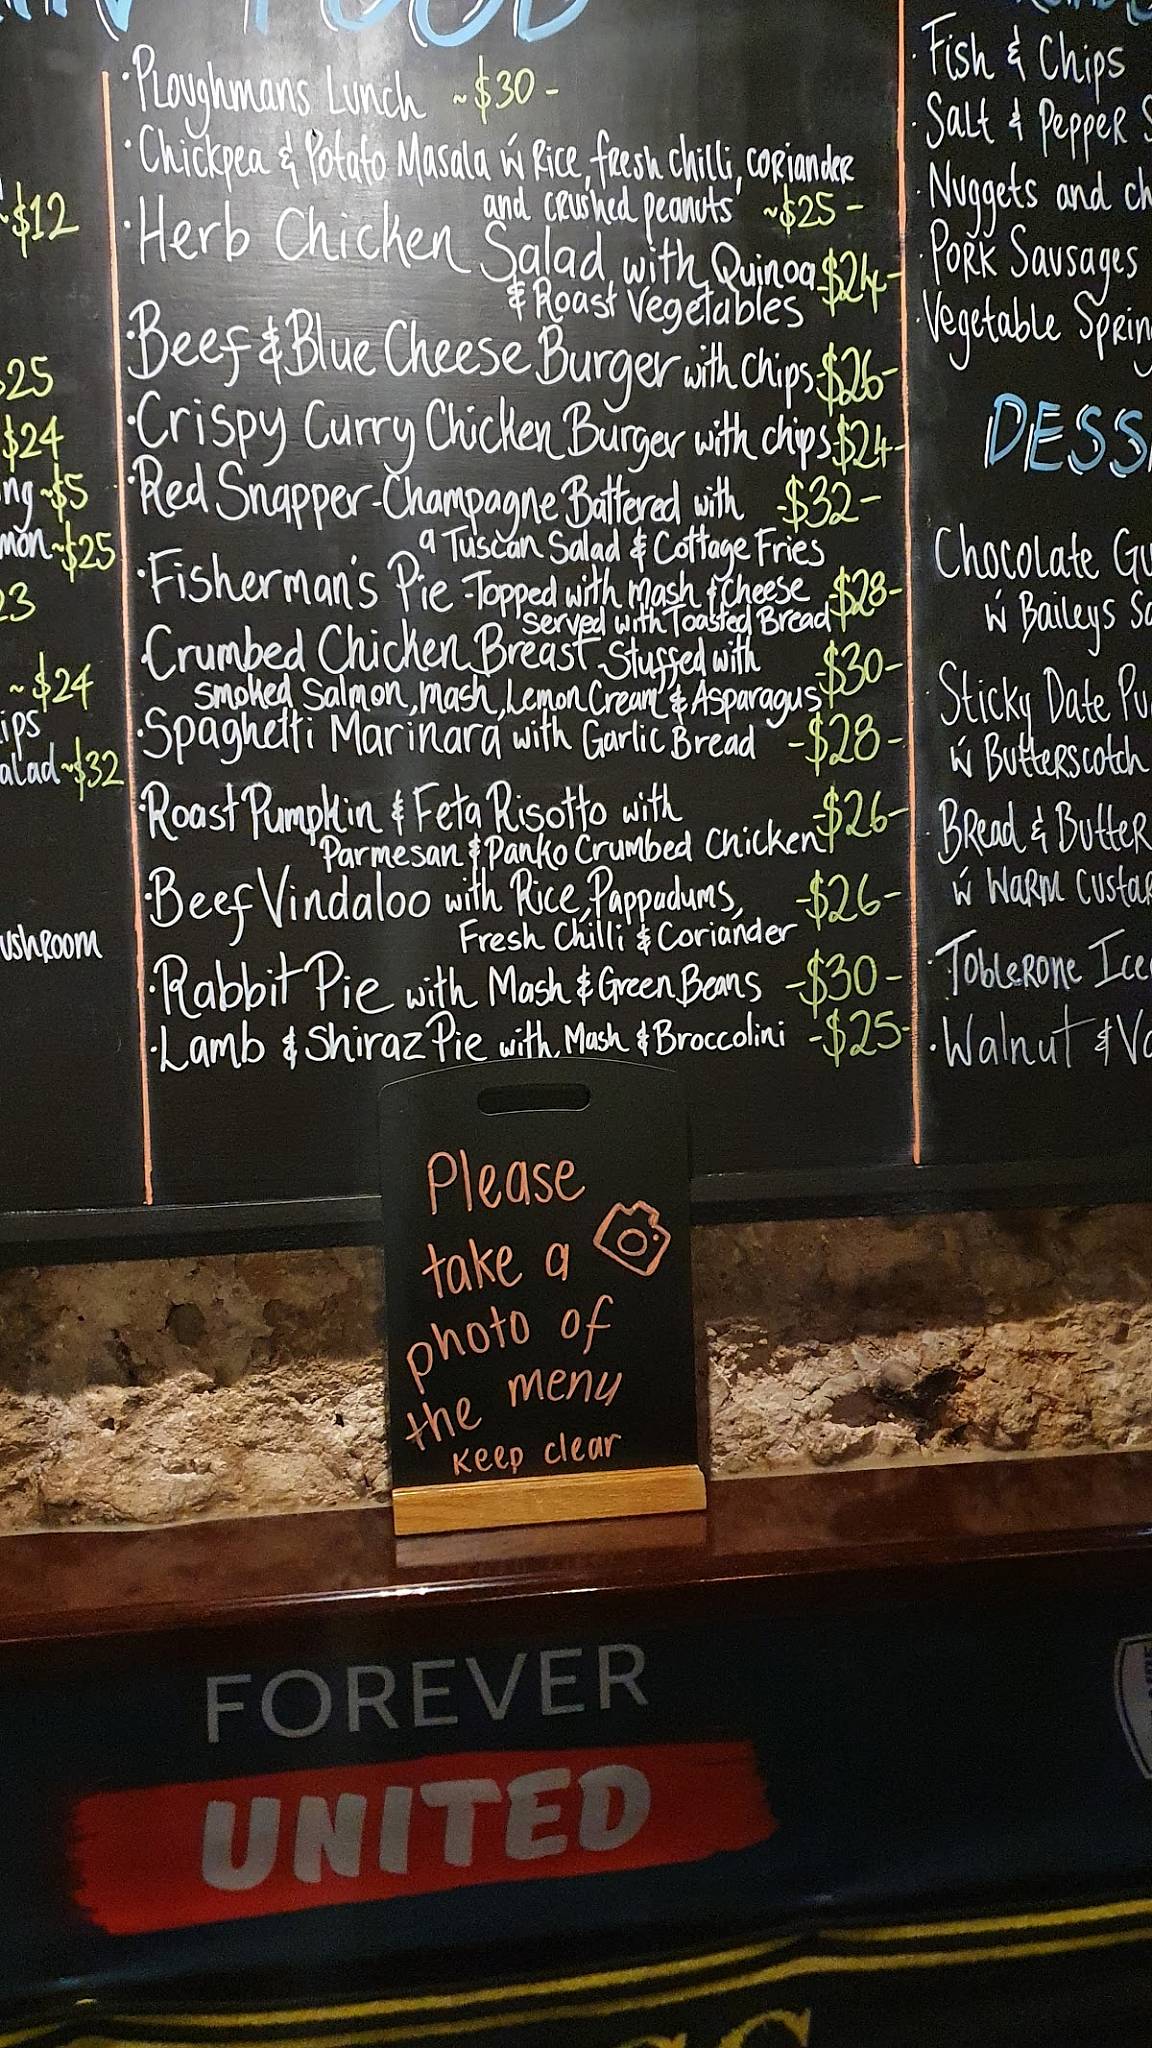 FOOD
·Ploughmans Lunch ~$30-
·Chickpea & Potato Masala ẃ Rice, fresh chilli, coriander
and crushed peanuts ~$25-
·Herb Chicken Salad with Quinoa $24-
& Roast Vegetables
·Beef & Blue Cheese Burger with chips -$26-
·Crispy Curry Chicken Burger with chips $24-
·Red Snapper - Champagne Battered with -$32-
a Tuscan Salad & Cottage Fries
·Fisherman's Pie - Topped with Mash & Cheese -$28-
Served with Toasted Bread
·Crumbed Chicken Breast - Stuffed with -$30-
smoked Salmon, mash, Lemon Cream & Asparagus
·Spaghetti Marinara with Garlic Bread -$28-
·Roast Pumpkin & Feta Risotto with -$26-
Parmesan & Panko Crumbed Chicken
·Beef Vindaloo with Rice, Pappadums, -$26-
Fresh Chilli & Coriander
·Rabbit Pie with Mash & Green Beans -$30-
·Lamb & Shiraz Pie with Mash & Broccolini -$25-
~$12
$25
$24
ng ~$5
mon ~$25
23
~$24
ips
alad ~$32
ushroom
·Fish & Chips
·Salt & Pepper S
·Nuggets and ch
·Pork Sausages
·Vegetable Spring
DESS
Chocolate Gu
ẃ Baileys Sa
·Sticky Date Pu
ẃ Butterscotch
·Bread & Butter
ẃ Warm Custar
·Toblerone Ice
·Walnut & Va
Please
take a
photo of
the menu
Keep clear
FOREVER
UNITED